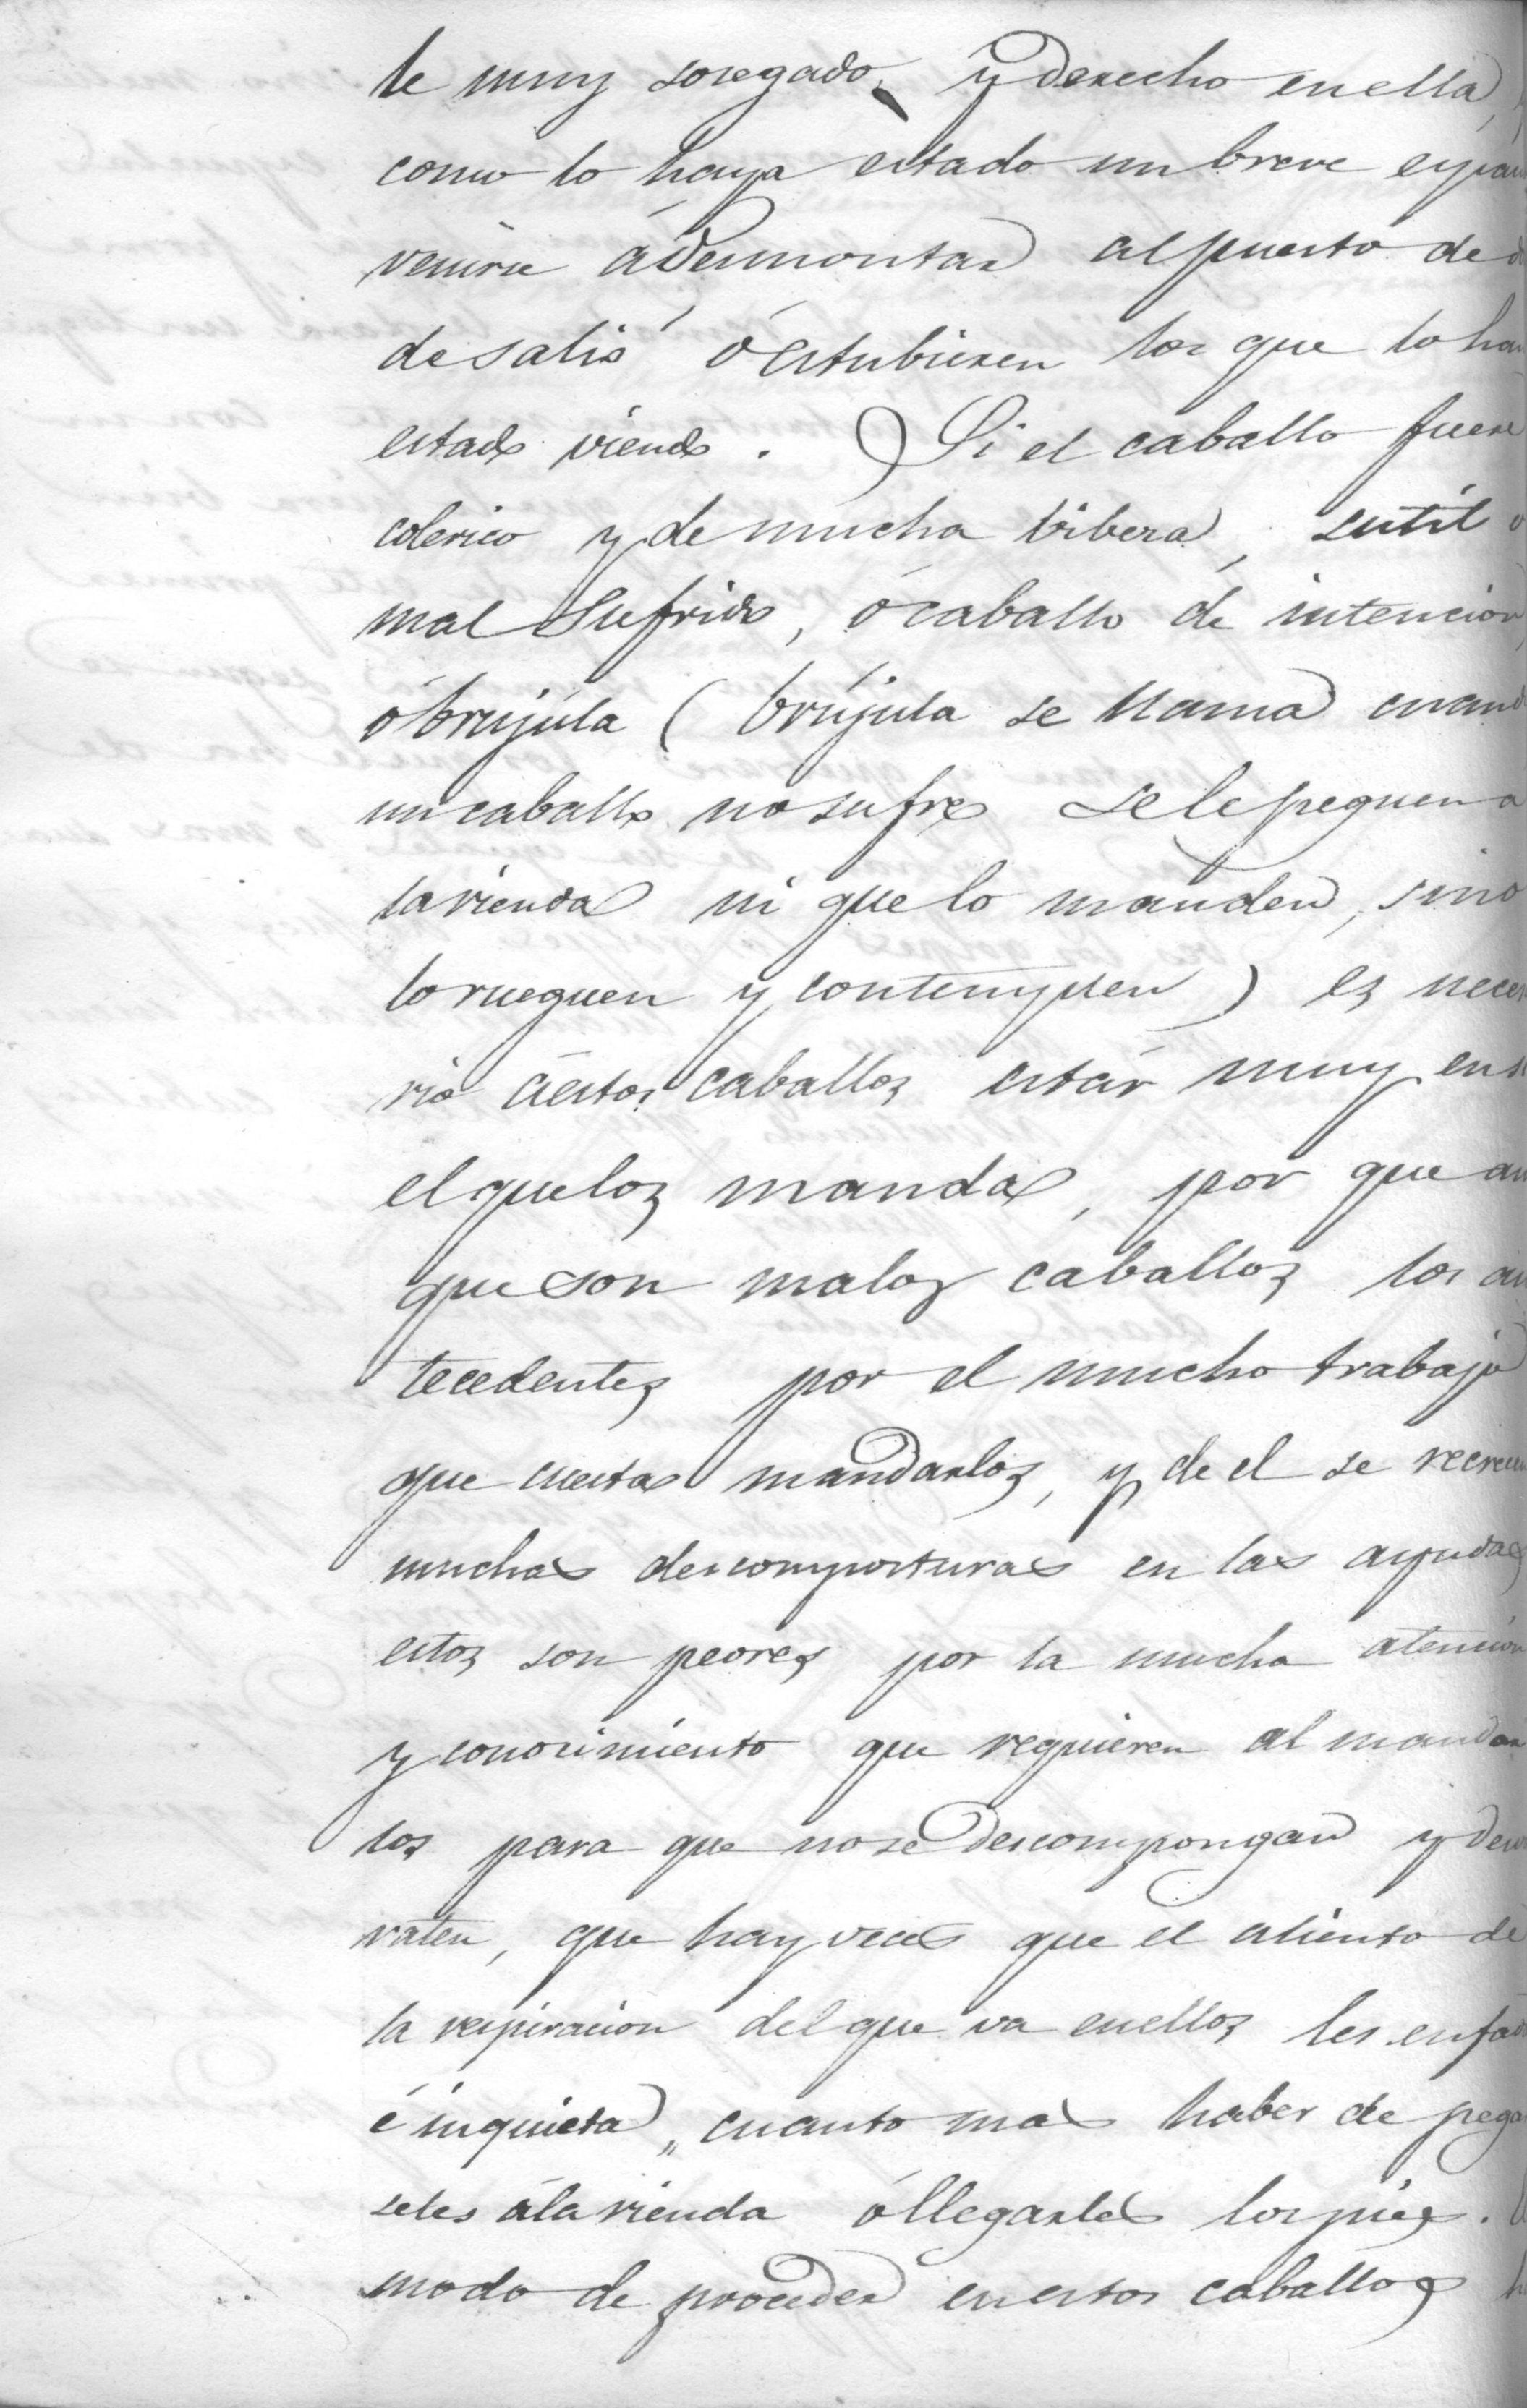 te muy sosegado, y derecho en ella,
como lo haya estado un breve espa
venirse á desmontar al puesto de d
de salió ó estubieren los que lo han
estado viendo. Si el caballo fuere
colerico y de mucha vibera, sutil o
mal sufrido, ó caballo de intencion
ó brújula (brújula se llama cuand
un caballo no sufre se le peguen a
la rienda ni que lo manden, sino
lo rueguen y contemplen) es nece
rio á estos caballos estár muy en
el que los manda, por que au
que son malos caballos los an
tecedentes por el mucho trabajo
que cuesta mandarlos, y de el se recrecen
muchas descomposturas en las ayudas
estos son peores por la mucha atencion
y conocimiento que requieren al mandar
los para que no se descompongan y desva
raten, que hay veces que el aliento de
la respiracion del que va en ellos les enfad
é inquieta, cuanto mas haber de pegar
seles á la rienda ó llegarles los pies.
modo de proceder en estos caballos h